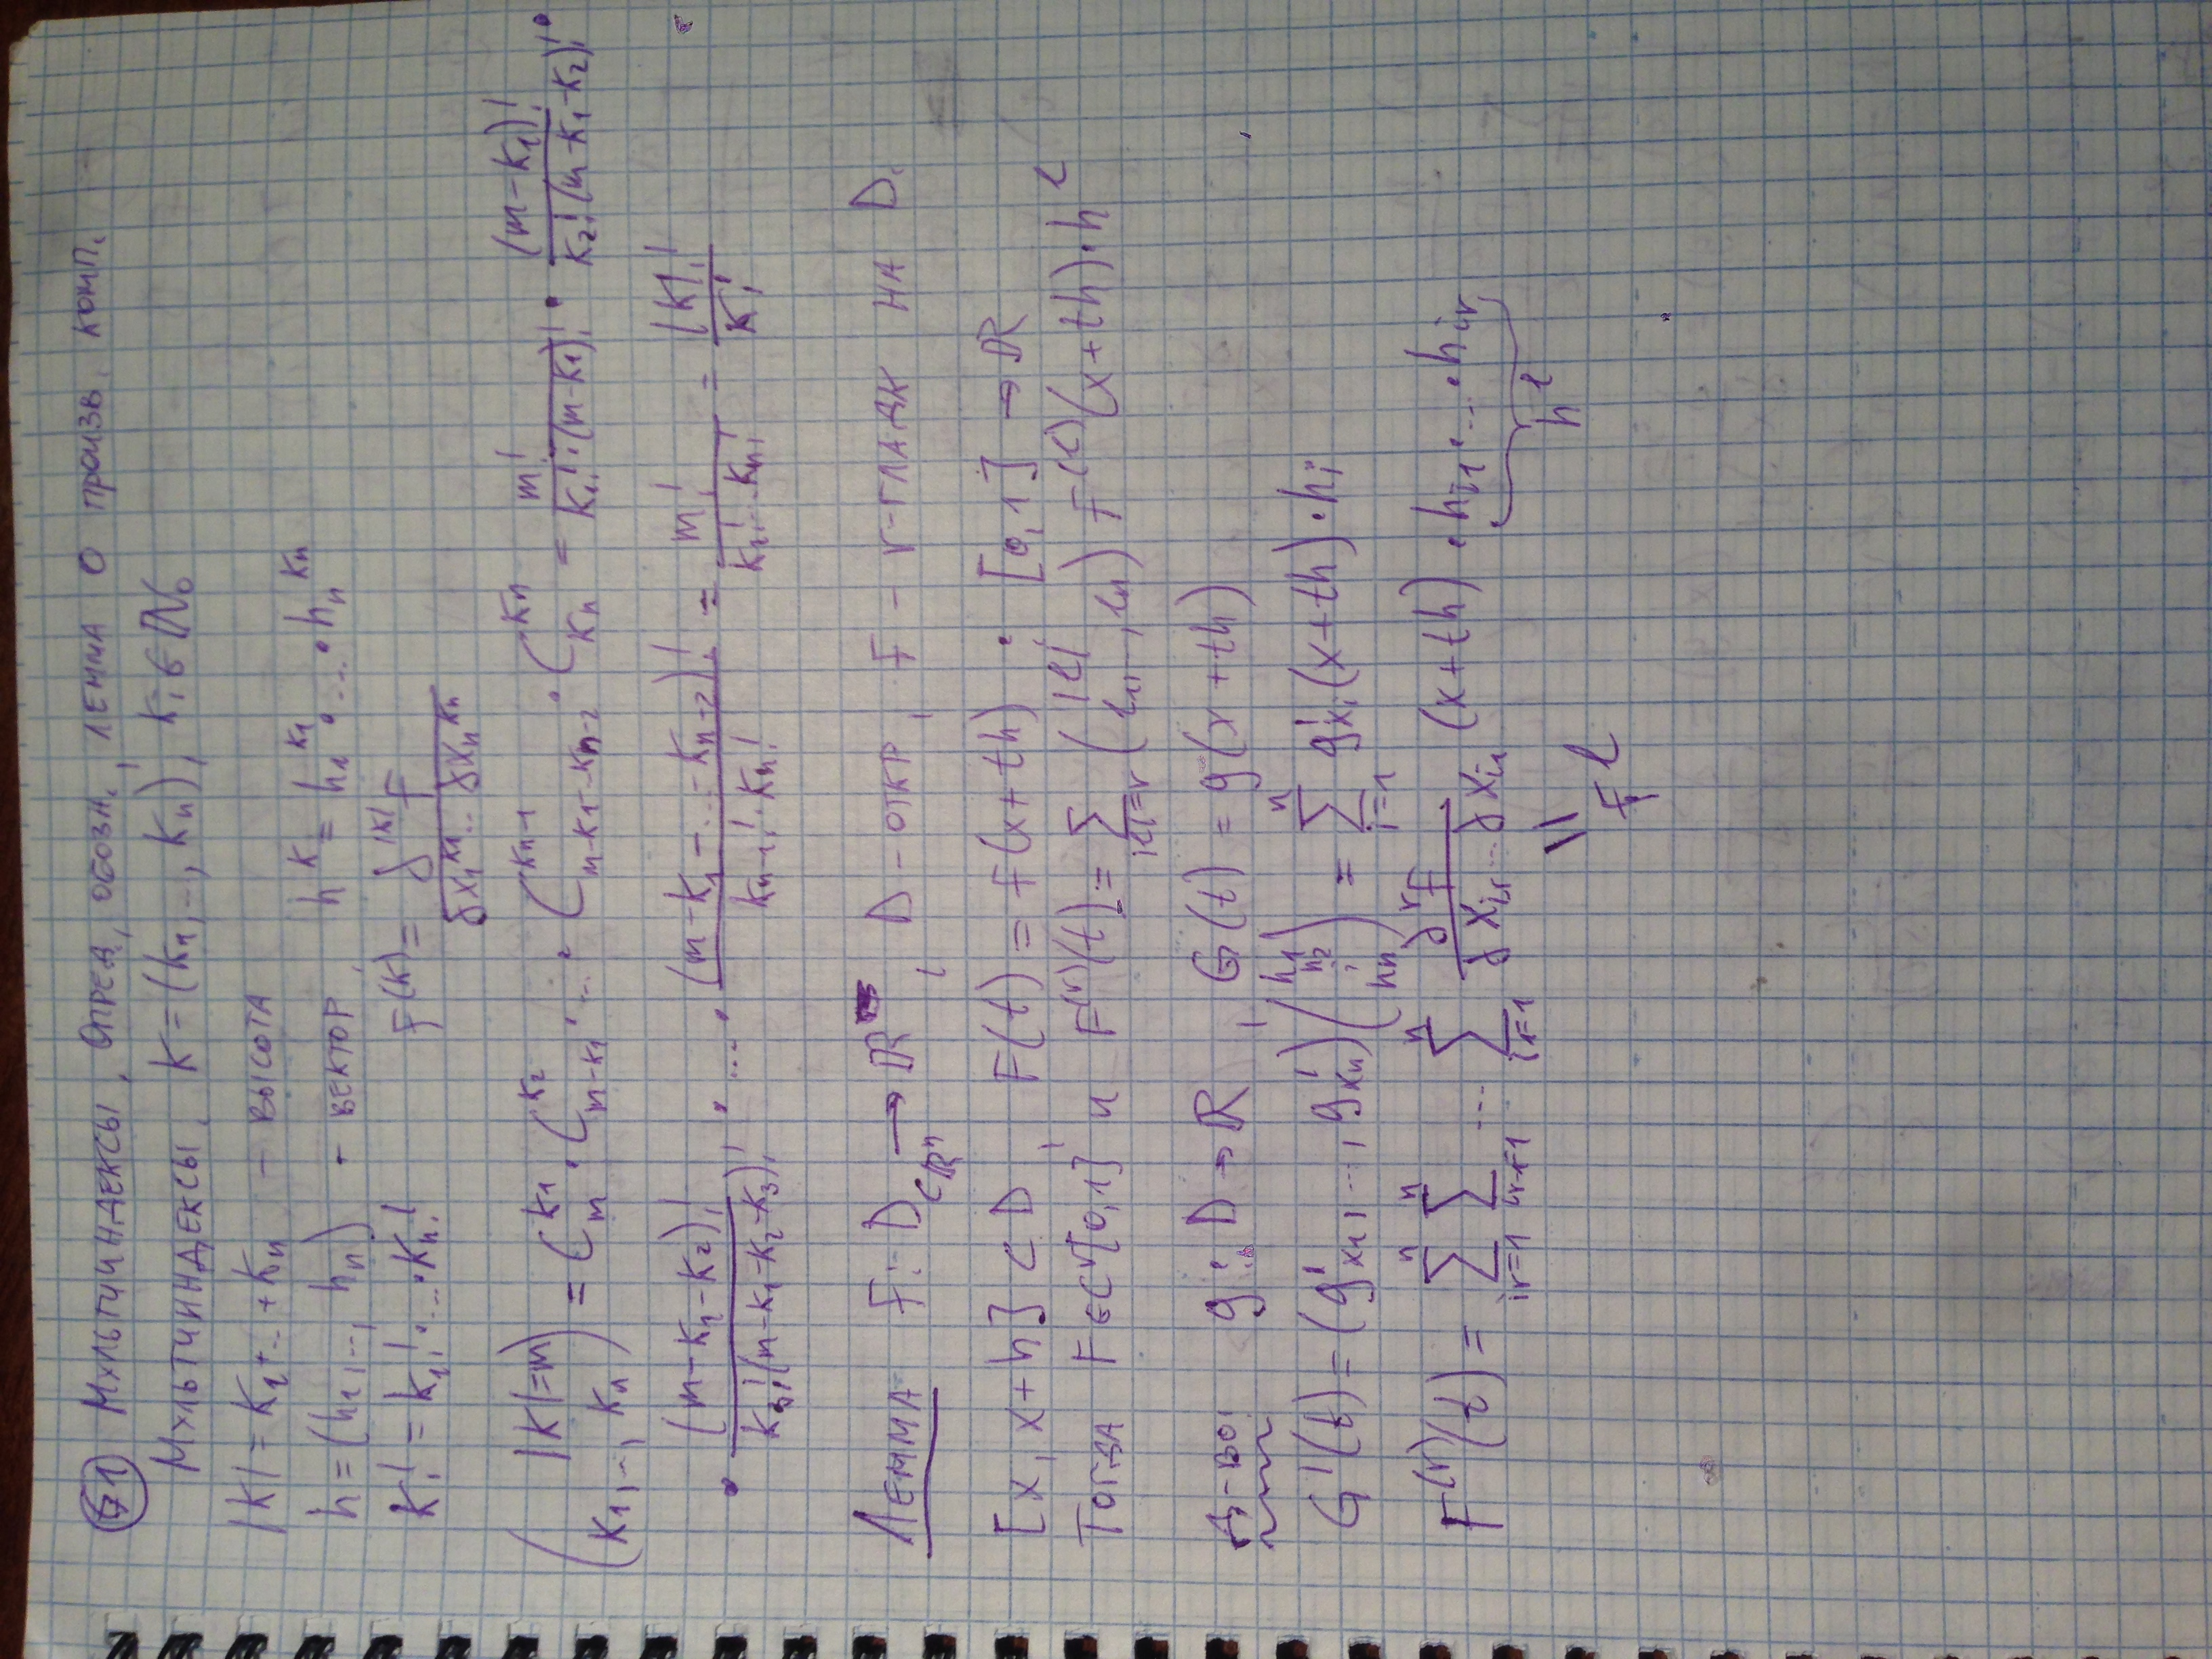 §1 Мультииндексы. Опред., обозн., лемма о произв. комп.
Мультииндексы. K = (k₁,..., kₙ), kᵢ ∈ ℕ₀
|K| = k₁+...+kₙ - высота
h = (h₁,..., hₙ) - вектор, h^K = h₁^k₁ · ... · hₙ^kₙ
K! = k₁! · ... · kₙ! F^(K) = ∂^|K| F / ∂x₁^k₁ ... ∂xₙ^kₙ
(|K|=m / k₁,..., kₙ) = C_m^k₁ · C_{m-k₁}^k₂ · ... · C_{m-k₁-...-k_{n-2}}^{k_{n-1}} · C_{kₙ}^{kₙ} = m! / k₁!·(m-k₁)! · (m-k₁)! / k₂!(m-k₁-k₂)! ·
· (m-k₁-k₂)! / k₃!(m-k₁-k₂-k₃)! · ... · (m-k₁-...-k_{n-2})! / k_{n-1}!·kₙ! = m! / k₁!...kₙ! = |K|! / K!
Лемма F: D ⊂ ℝⁿ → ℝ, D - откр, F - r-гладк на D.
[x, x+h] ⊂ D, F(t) = F(x+th) : [0,1] → ℝ
Тогда F ∈ C^r[0,1] и F^(r)(t) = Σ_{|l|=r} (|l| / l₁,..., lₙ) F^(l)(x+th)·h^l
Д-во: g: D → ℝ, G(t) = g(x+th)
G'(t) = (g'_x₁,..., g'_xₙ)(h₁ h₂ ⋮ hₙ) = Σ_{i=1}^n g'_xᵢ(x+th)·hᵢ
F^(r)(t) = Σ_{i_r=1}^n Σ_{i_{r-1}=1}^n ... Σ_{i₁=1}^n ∂^r F / ∂x_{i_r}...∂x_{i₁} (x+th) · h_{i₁}·...·h_{i_r}
h^l
|| F^l